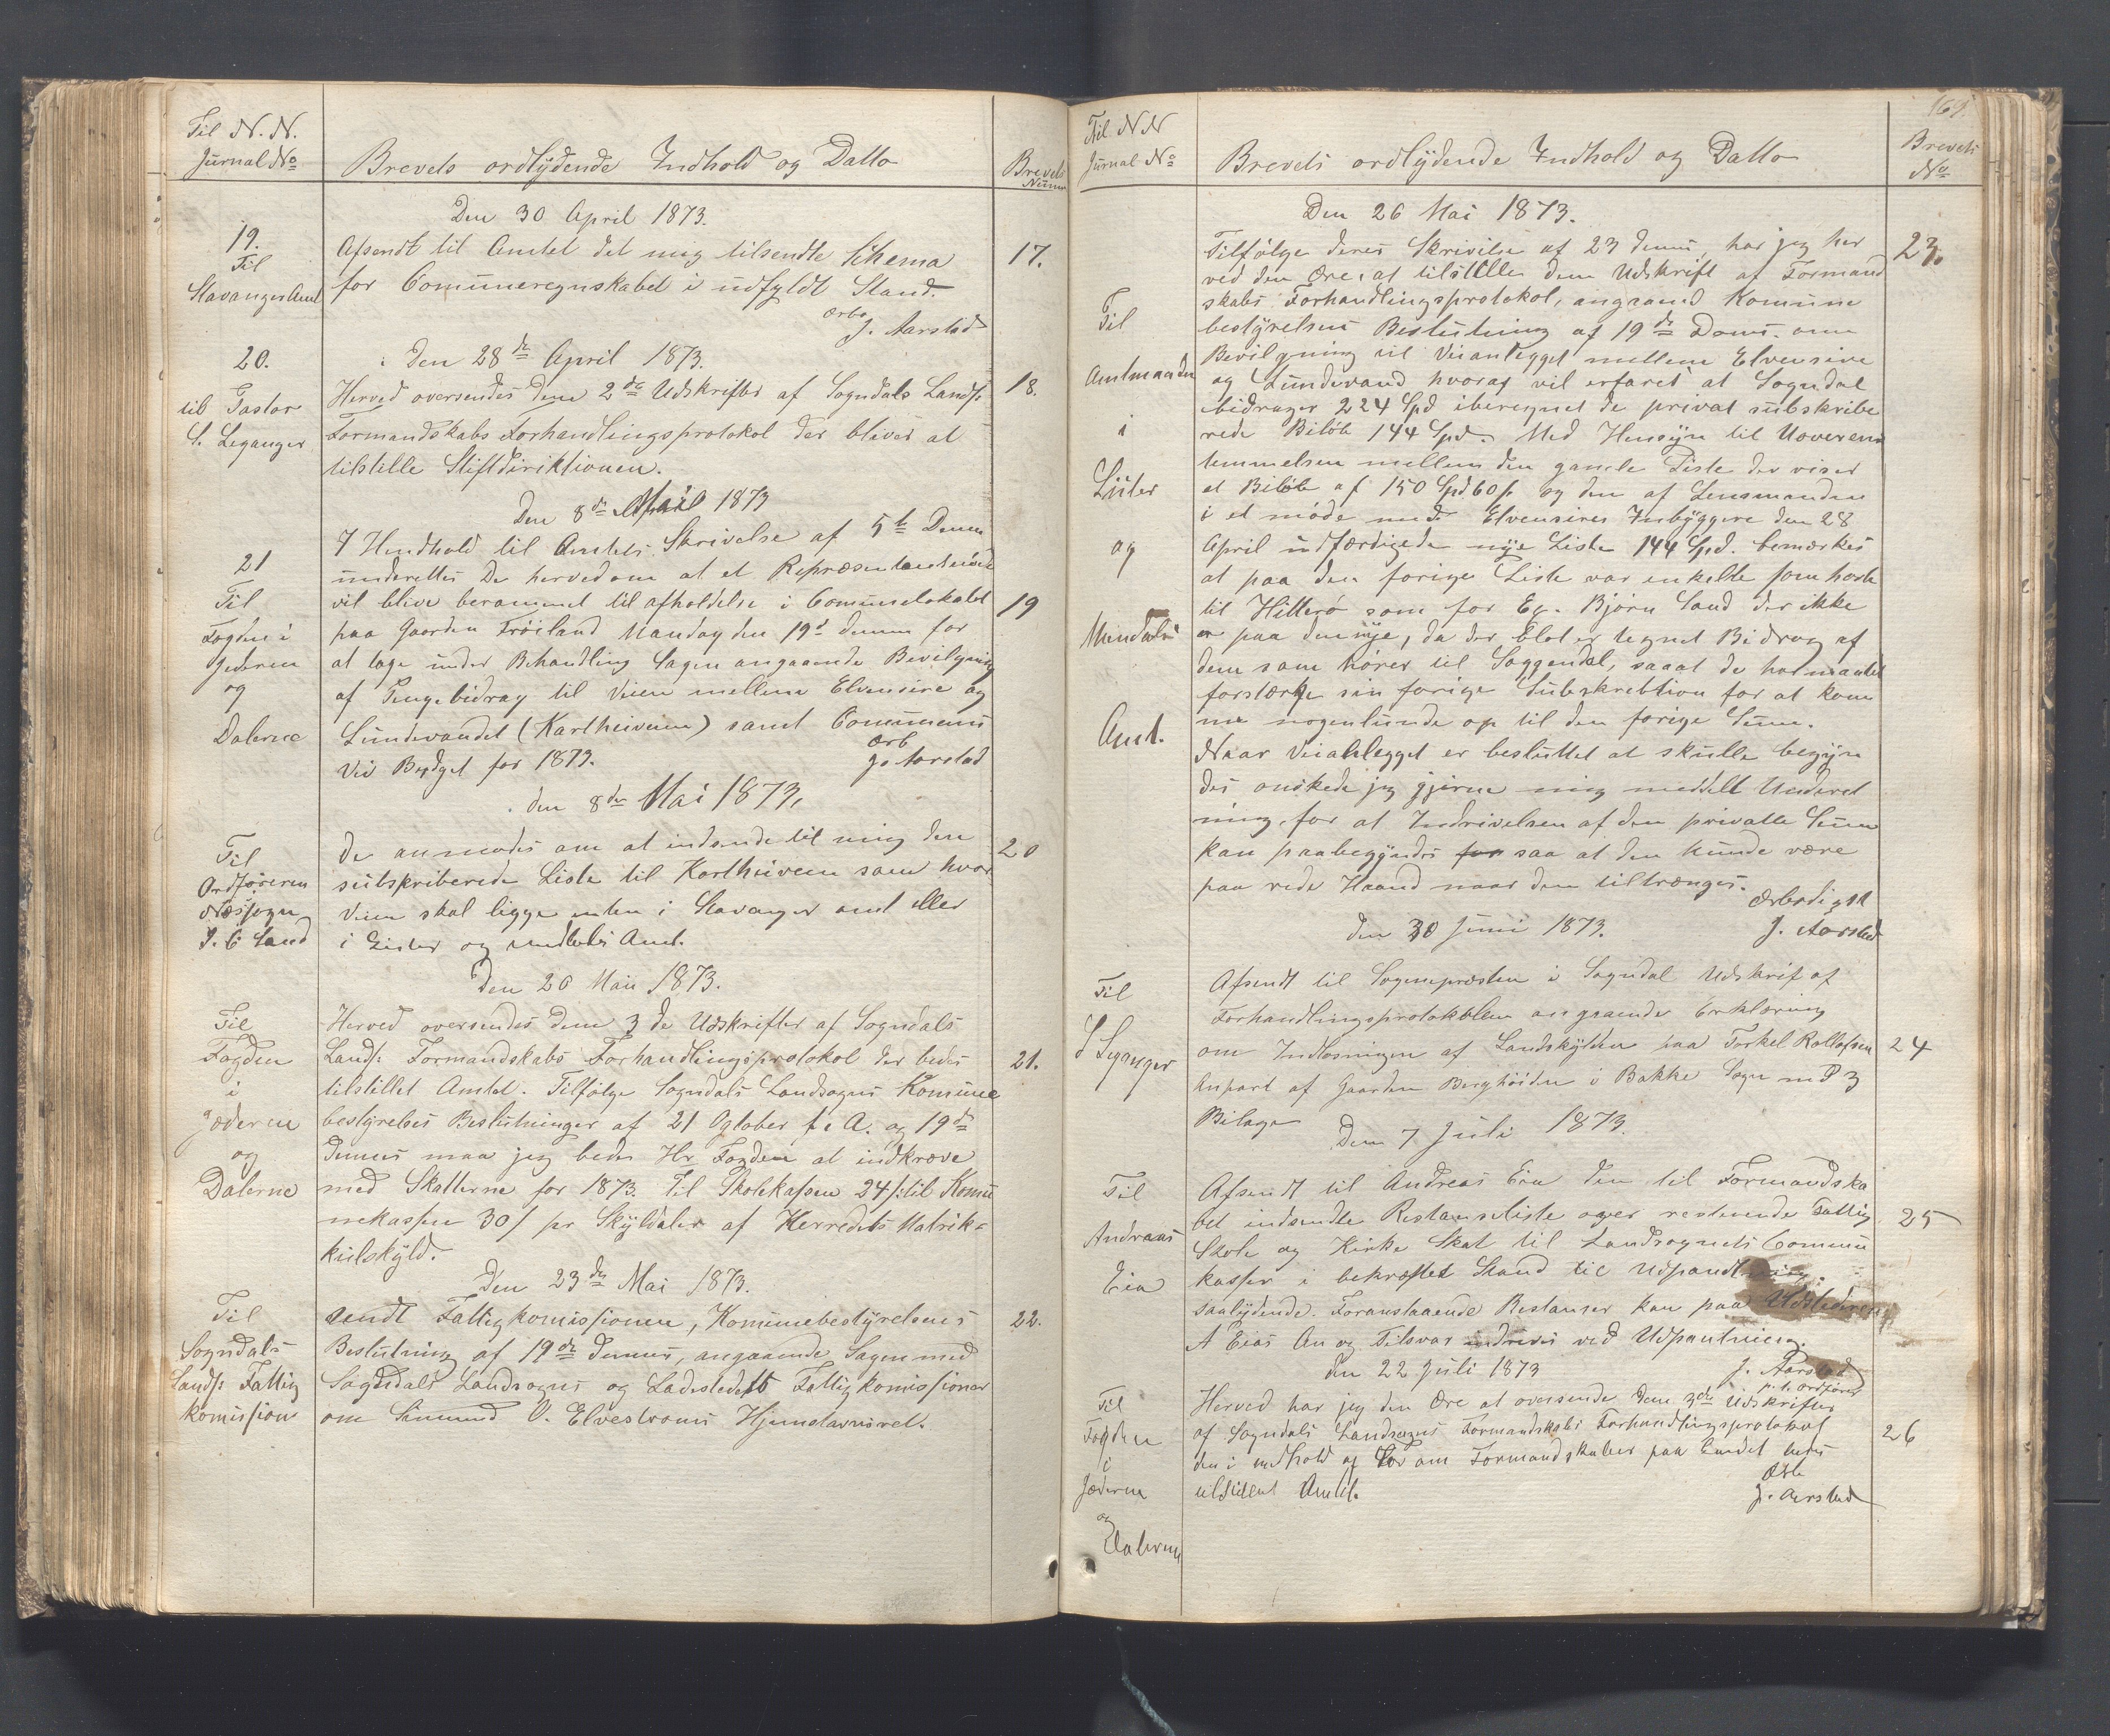 Til N. N.
Jurnal No
Brevets ordlydende Indhold og Datto
Brevets
Numer
Den 30 April 1873.
19.
Til
Stavanger Amt
Afsendt til Amtet det mig tilsendte Schema
for Communeregnskabet i udfyldt Stand.
17.
Ærb
J. Aarstad
Den 28de April 1873.
20.
til Pastor
S. Leganger
Herved oversendes Dem 2de Udskrifter af Sogndals Lands.
Formandskabs Forhandlingsprotokol der blives at
tilstille Stiftdiriktionen.
18.
Den 8de Mai 1873
21
Til
Fogden i
Jederen
og
Dalerne
I Hendhold til Amtets Skrivelse af 5te Denes
underettes De hervedom at et Repræsentantmöde
vil blive berammet til afholdelse i Communelokalet
paa Gaarden Fröiland Mandag den 19d denes for
at tage under Behandling Sagen angaaende Bevilgning
af Pengebidrag til Veien mellem Elvensire og
Lundevandet (Kartheiveien) samt Communens
Vei Budget for 1873.
19
Ærb
J. Aarstad
den 8de Mai 1873,
Til
Ordföreren
Næssogn
De anmodes om at indsende til mig den
subskriberede Liste til Kartheiveien som hvor
Veien skal ligge enten i Stavanger amt eller
i Lister og Mandals Amt.
20
Den 20 Mai 1873.
Til
Fogden
i
Jæderne
og
Dalerne
Herved oversendes Dem 3 de Udskrifter af Sogndals
Lands: Formandskabs Forhandlingsprotokol der bedes
tilstillet Amtet. Tilfølge Sogndals Landsogns Komune
bestyrelses Beslutninger af 21 Ogtober f. A. og 19de
Dennes maa jeg bede Hr Fogden at indkræve
med Skatterne for 1873. Til Skolekassen 24 s: til Komu
nekassen 30 s pr Skyldaler af Herredets Matrik=
kulskyld.
21.
Den 23de Mai 1873.
Til
Sogndals
Lands: Fattig
komission
sendt Fattigkomissionen, Komunebestyrelsens
Beslutning af 19de Dennes, angaaende Sagen med
Sogndals Landsogns og Ladestedets Fattigkomissioner
om Simund O. Elvestroms Hjemstavnsret.
22.
169.
Til N N
Jurnal No
Brevets ordlydende Indhold og Datto
Brevets
No
Den 26 Mai 1873.
Til
Amtmanden
i
Lister
og
Mandals
Amt.
Tilfølge deres Skrivelse af 23 denes, har jeg her
ved den Ære, at tilstille dem Udskrift af Formand
skabs Forhandlingsprotokol, angaaend Komune
bestyrelsens Beslutning af 19de Denes. om
Bevilgning til Veianlegget mellem Elvensire
og Lundevand hvoraf vil erfares at Sogndal
bidrager 224 Spd iberegnet de privat subskribe
rede Biløb 144 Spd. Med Hensyn til Uoverens
temmelsen mellem den gamle Liste der viser
et Biløb af 150 Spd 60 s og den af Lensmanden
i et møde med Elvensires Inbyggere den 28
April udfærdigede nye Liste 144 Spd. bemærkes
at paa den forige Liste var enkelte som hörte
til Hitterø som for Ex. Bjørn Sand der ikke
er paa den nye, da der blot er tegnet Bidrag af
dem som hører til Soggendal, saaat de har maattet
forstærke sin forige Subskrebtion for at kom
me nogenlunde op til den forige Sum.
Naar Veianlegget er besluttet at skulle begyn
des önskede jeg gjerne mig meddelt Underet
ning, for at Indrivelsen af den private Sum
kan paabegyndes saa at den kunde være
paa rede Haand naar den tiltrænges.
23.
Ærbødigst
J. Aarstad
den 30 Juni 1873.
Til
S Leganger
Afsendt til Sognepræsten i Sogndal Udskrif af
Forhandlingsprotokollen angaaende Erklæring
om Indlösningen af Landskylden paa Torkel Rollofsen
Anpart af Gaarden Berghöiden i Bakke Sogn med 3
Bilage
24
Den 7 Juli 1873.
Til
Andreas
Eia
Afsendt til Andreas Eia den til Formandska
bet indsendte Restanseliste over restende Fattig
Skole og Kirke Skat til Landsognets Commu
kasser i bekræftet Stand til Udpantning.
saalydende. Foranstaaende Restanser kan paa Udstederen
A Eias An og Tilsvar indrives ved Udpantning.
25
J. Aarstad
p. t. Ordfører
den 22 Juli 1873
Til
Fogden
i
Jæderne
og
Dalerne
Herved har jeg den Ære at oversende Dem 3de Udskrifter
af Sogndals Landsogns Formandskabs Forhandlingsprotokol
den i medhold af Lov om Formandskaber paa Landet bedes
tilstillet Amtet.
26
Ærb
J. Aarstad